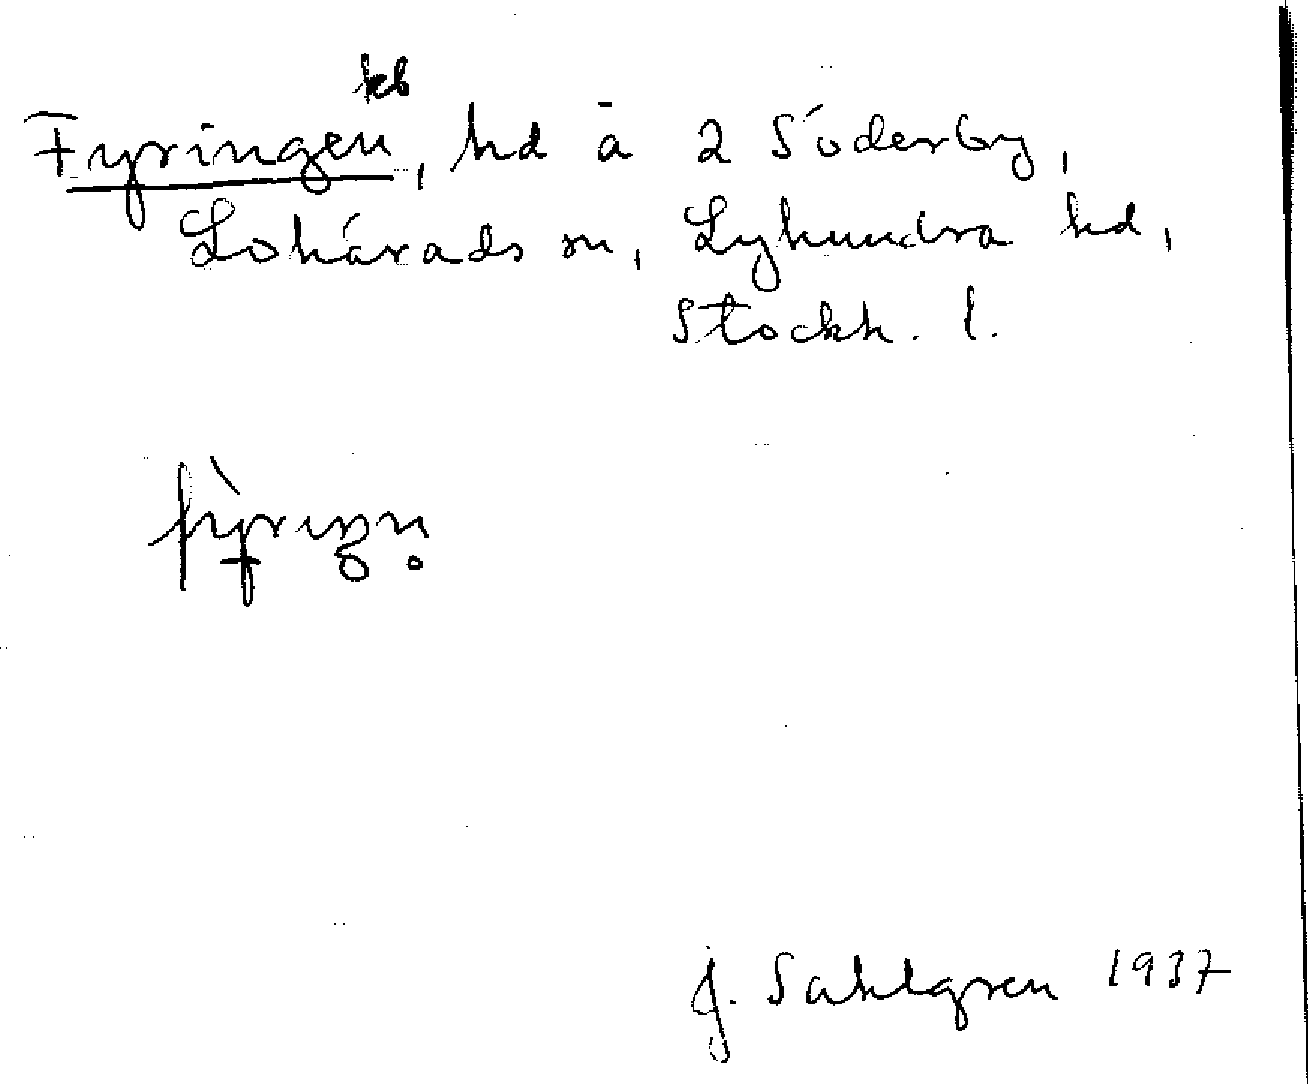 kb
Fyringen, hd å 2 Söderby,
Lohärads sn, Lyhundra hd,
Stockh. l.
J. Sahlgren 1937